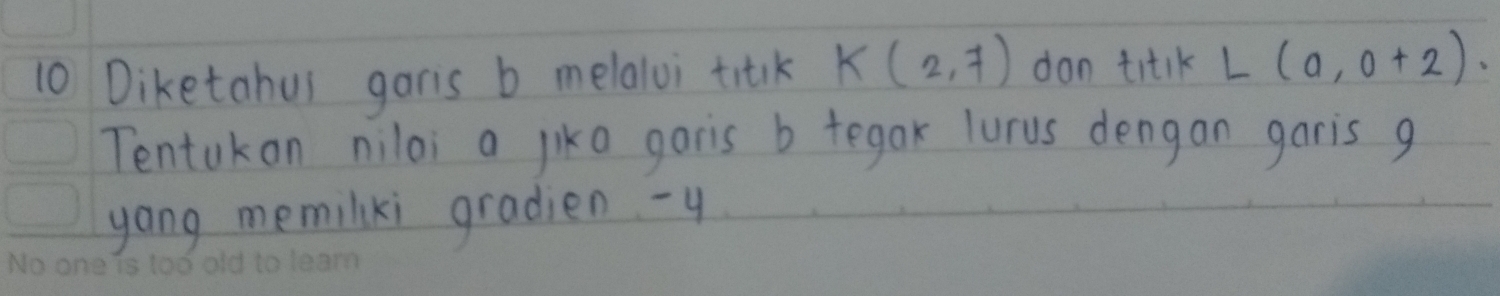 10 Diketahui garis b melalui titik K (2,7) dan titik L (a, a+2).
Tentukan nilai a jika garis b tegak lurus dengan garis g
yang memiliki gradien -4
No one is too old to learn